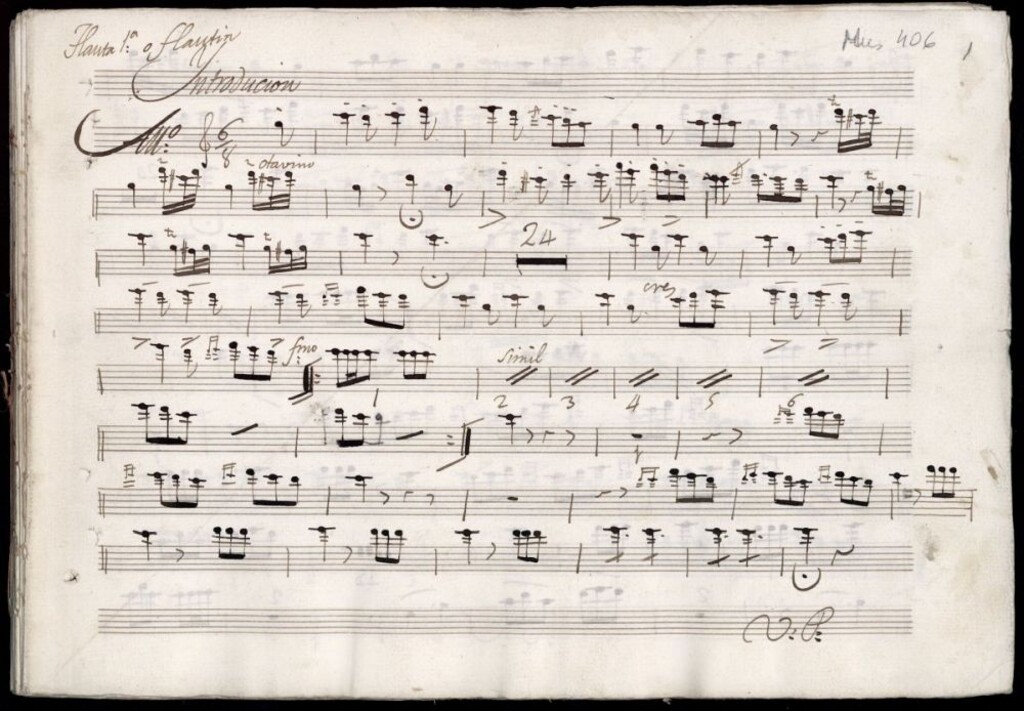 Flauta 1.ª o flautin
Mus 406
1
Introducion
All.º 6/8
otavino
24
cres
fmo
simil
1 2 3 4 5 6
1
V: P: